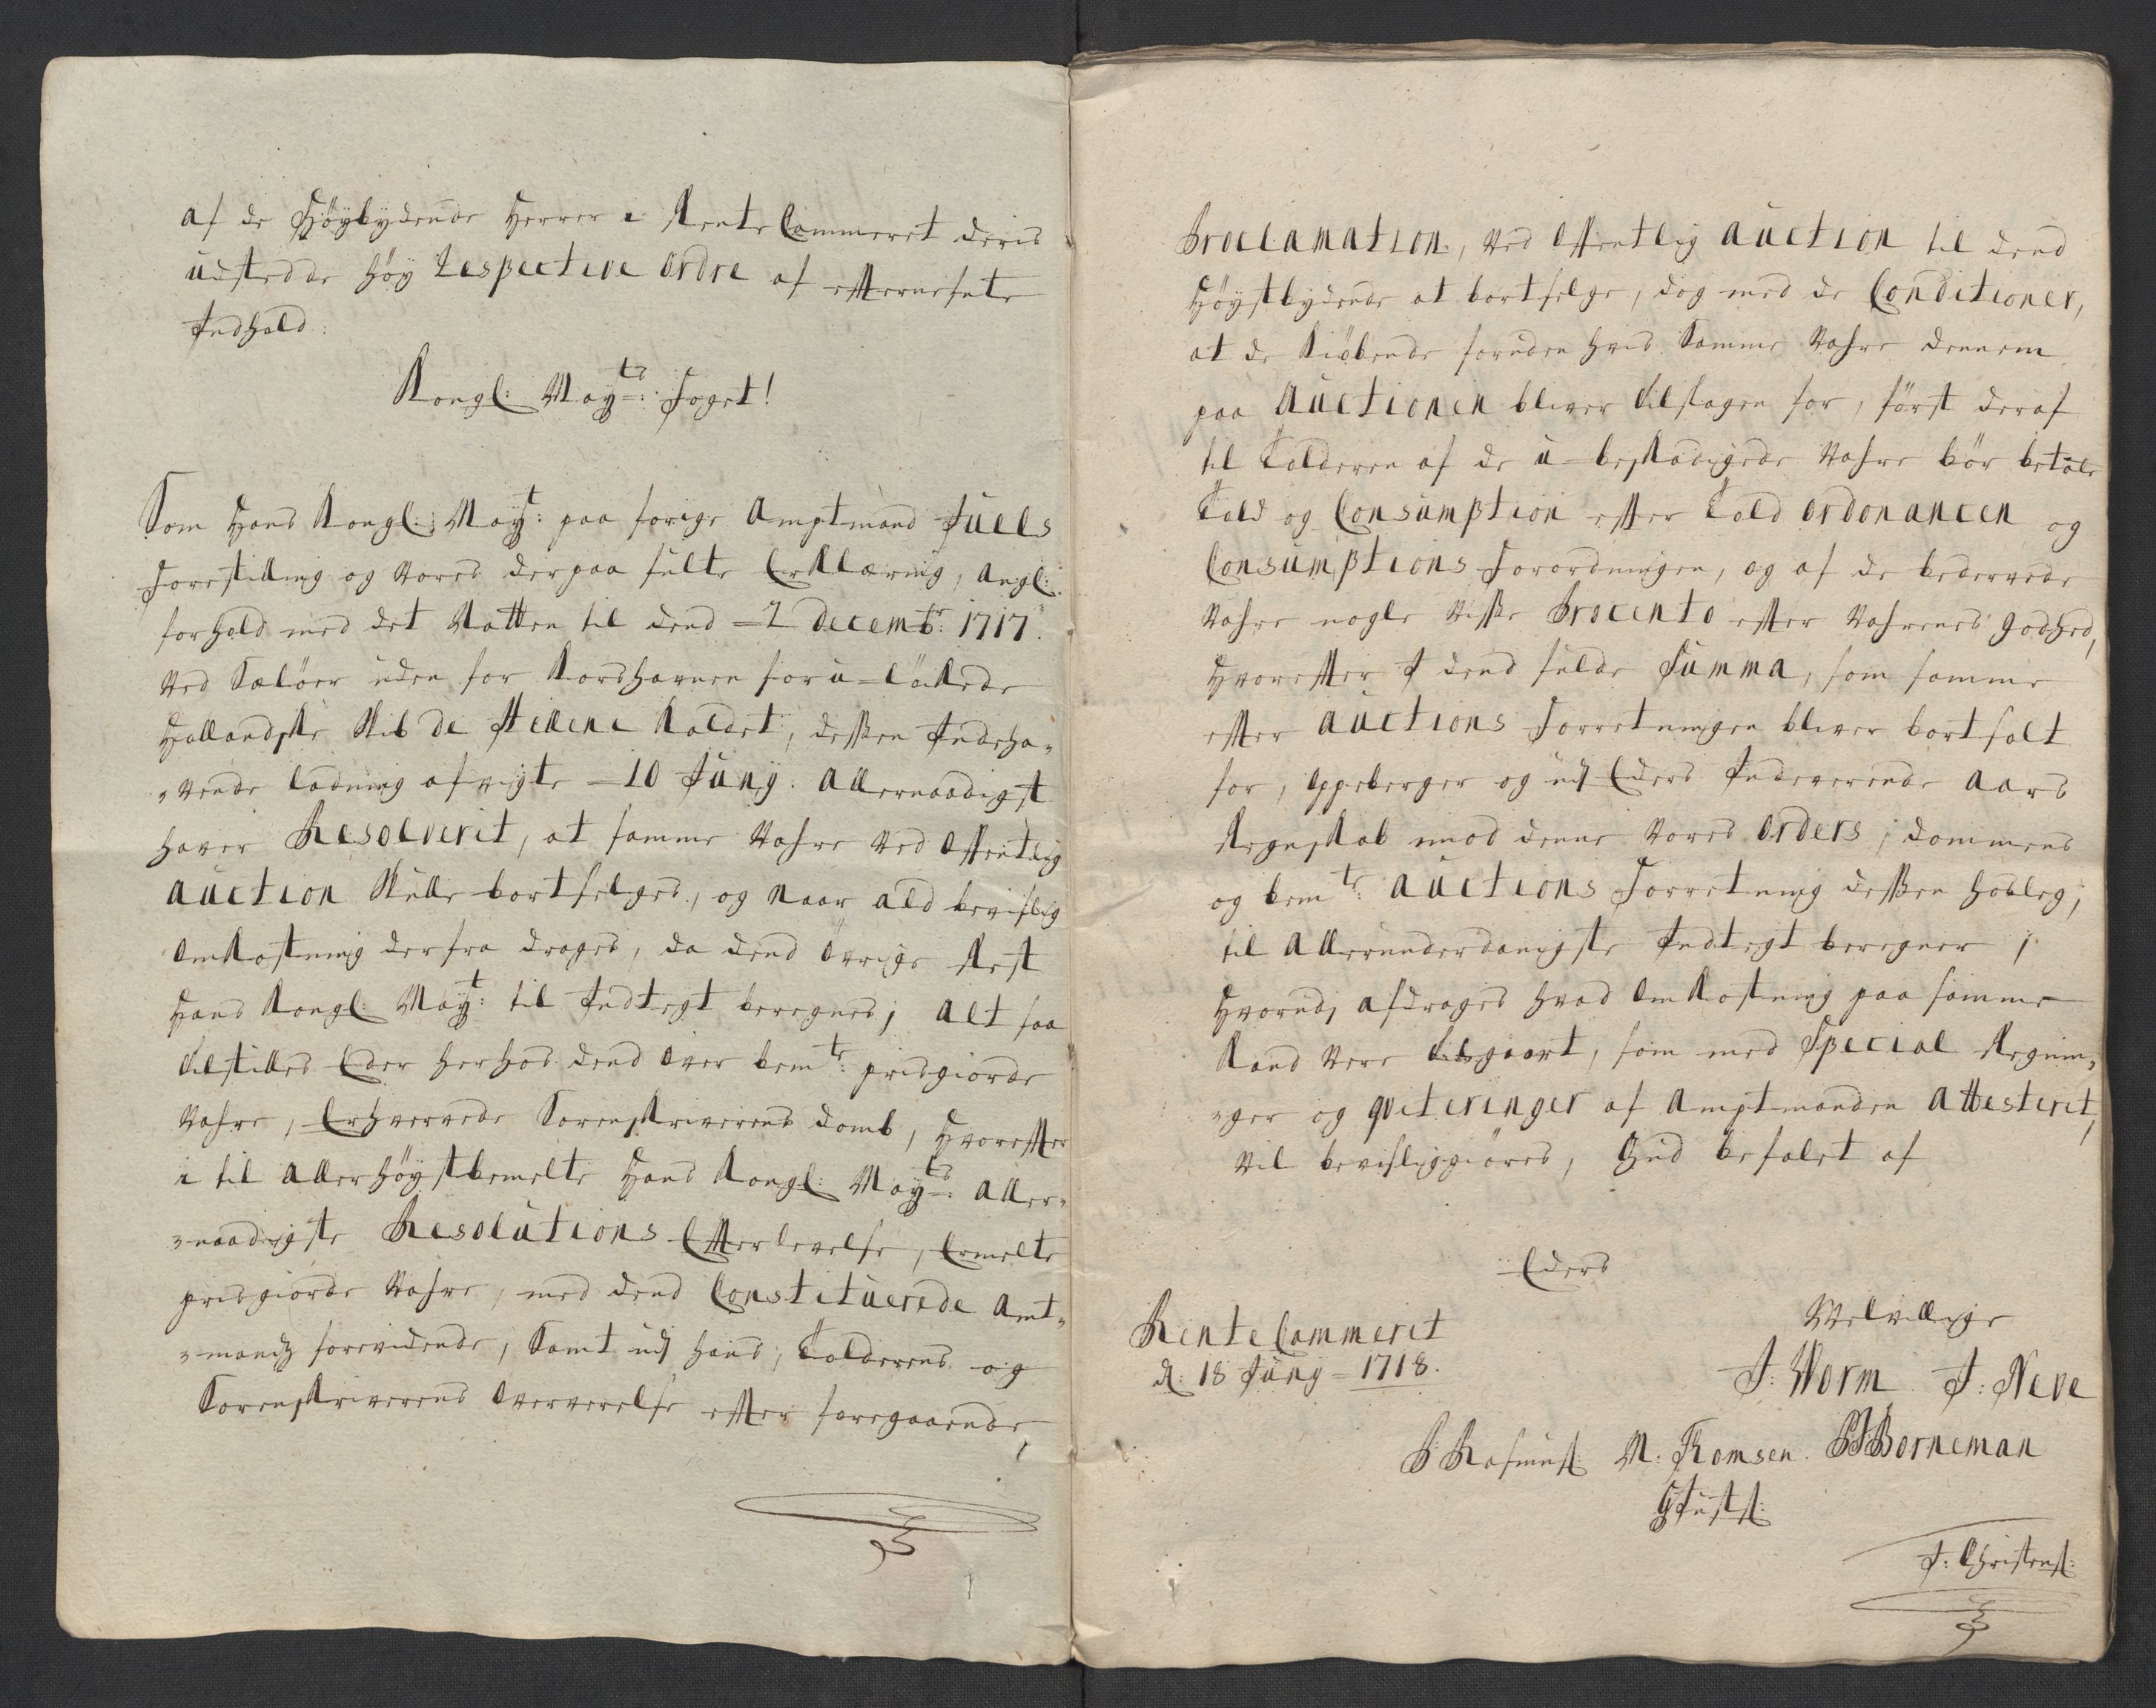 af de Höybydende Herrer i Rente Cammeret deris
udstedde höy Respective Ordre af effternefnte
Indhold:
Kongl: Mayts: Foget!
Som Hans Kongl: Mayt: paa forige Amptmand Juels
Forestilling og vores derpaa fulte Erklæring, angl:
forhold med det Natten til dend 2 decembr: 1717.
ved Seløer uden for Korshavnen foru-lökede
Hollandske Skib de Hellene kaldet, dessen Indeha-
-vende ladning afvigte 10 Juny: allernaadigst
haver Resolverit, at samme Vahre ved offentlig
Auction skulle bortselges, og naar ald bevislig
Omkostning derfra drages, da dend övrige Rest
Hans Kongl: Mayt: til Indtegt beregnes; Alt saa
tilstilles Eder herhos dend over bemte: prisgiorde
Vahre, Erhvervede Sorenskriverens Domb, Hvoreffter
i til allerhöystbemelte Hans Kongl: Mayts: Aller-
-naadigste Resolutions Effterlevelse, Ermelte
prisgiorde Vahre, med dend Constituerede Amt-
-mandz forevidende, samt udj hans, Tolderens og
Sorenskriverens Oververelse effter foregaaende
Proclamation, ved Offentlig Auction til dend
Höystbydende at bortselge, dog med de Conditioner,
at de Kiöbende foruden hvis samme Vahre dennem
paa Auctionen bliver tilslagen for, först deraf
til Tolderen af de u-beskadigede Vahre bör betale
Told og Consumption effter Told Ordonancen og
Consumptions Forordningen, og af de bedervede
Vahre nogle visse Procento effter Vahrenes godhed,
Hvoreffter I dend fulde Summa, som samme
effter Auctions Forretningen bliver bortsolt
for, Oppeberger og udj Eders Indeverende Aars
Regnskab imod denne vores Orders, dommens
og bemte: Auctions Forretning dessen hosleg,
til allerunderdanigste Indtegt beregner,
Hvorudj afdrages hvad Omkostning paa samme
kand vere giort, som med Special Regnin-
-ger og qviteringer af Amptmanden Attesterit,
vil bevisliggiöres, Gud befalet af
Eders
Velvillige
Rente Cammerit
d: 18 Juny 1718.
J: Worm J: Neve
P Rasmus: M: Tomsen. Borneman
J: Christens: